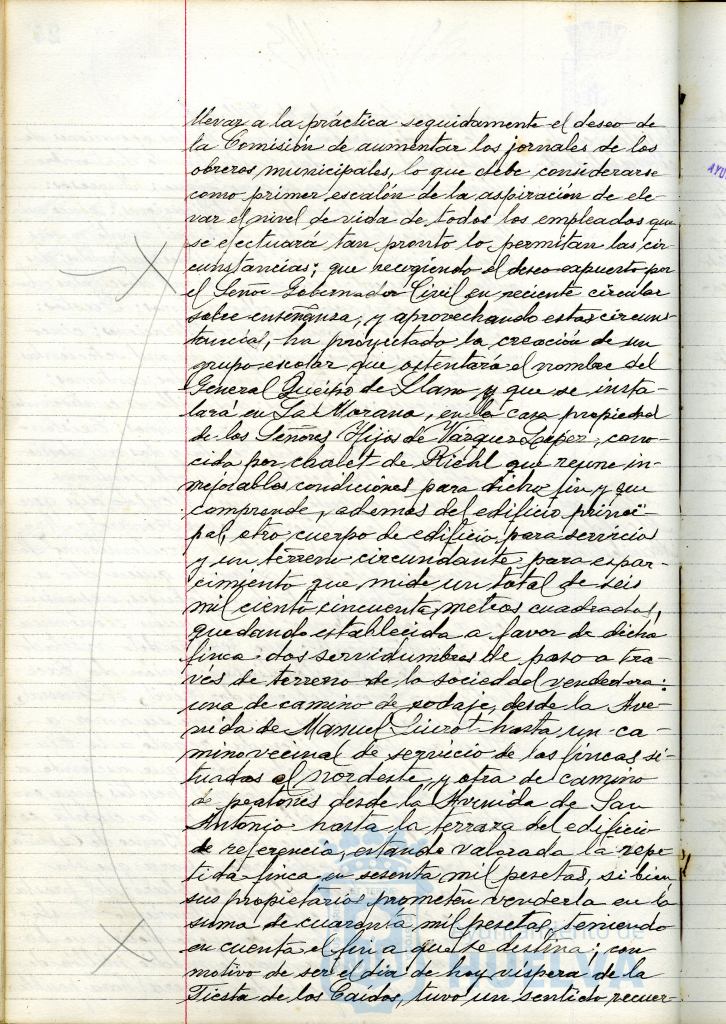 llevar a la práctica seguidamente el deseo de
la Comisión de aumentar los jornales de los
obreros municipales, lo que debe considerarse
como primer escalón de la aspiración de ele-
var el nivel de vida de todos los empleados que
se efectuará tan pronto lo permitan las cir-
cunstancias; que recogiendo el deseo expuesto por
el Señor Gobernador Civil en reciente circular
sobre enseñanza, y aprovechando estas circuns-
tancias, ha proyectado la creación de un
grupo escolar que ostentará el nombre del
General Queipo de Llano y que se insta-
lará en La Morana, en la casa propiedad
de los Señores Hijos de Vázquez López, cono-
cida por chalet de Riehl que reune in-
mejorables condiciones para dicho fin y que
comprende, además del edificio princi-
pal, otro cuerpo de edificio para servicios
y un terreno circundante para espar-
cimiento que mide un total de seis
mil ciento cincuenta metros cuadrados,
quedando establecida a favor de dicha
finca dos servidumbres de paso a tra-
vés de terreno de la sociedad vendedora:
una de camino de rodaje, desde la Ave-
nida de Manuel Siurot hasta un ca-
mino vecinal de servicio de las fincas si-
tuadas al nordeste y otra de camino
de peatones desde la Avenida de San
Antonio hasta la terraza del edificio
de referencia, estando valorada la repe-
tida finca en sesenta mil pesetas, si bien
sus propietarios prometen venderla en la
suma de cuarenta mil pesetas, teniendo
en cuenta el fin a que se destina; con
motivo de ser el día de hoy víspera de la
Fiesta de los Caídos, tuvo un sentido recuer-
Ayuntamiento de
HUELVA
AYU